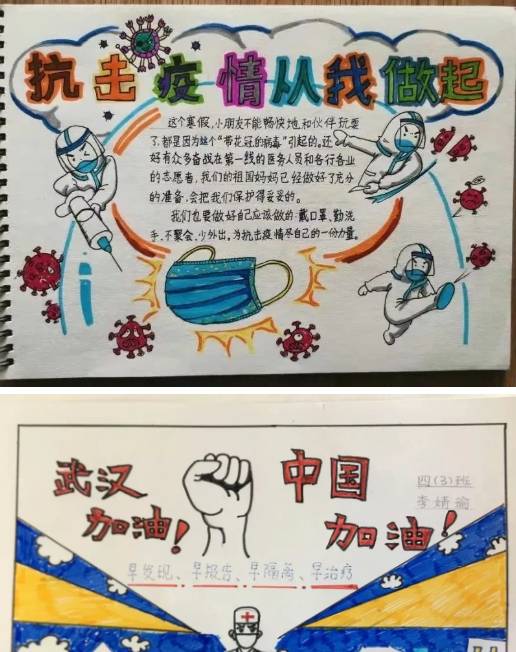 抗击疫情从我做起
这个寒假,小朋友不能畅快地和伙伴玩耍
了,都是因为这个“带花冠的病毒”引起的。还
好有众多奋战在第一线的医务人员和各行各业
的志愿者,我们的祖国妈妈已经做好了充分
的准备,会把我们保护得妥妥的。
我们也要做好自己应该做的:戴口罩、勤洗
手、不聚会、少外出,为抗击疫情尽自己的一份力量。
武汉
加油!
中国
加油!
四(3)班
李婧瑜
早发现、早报告、早隔离、早治疗